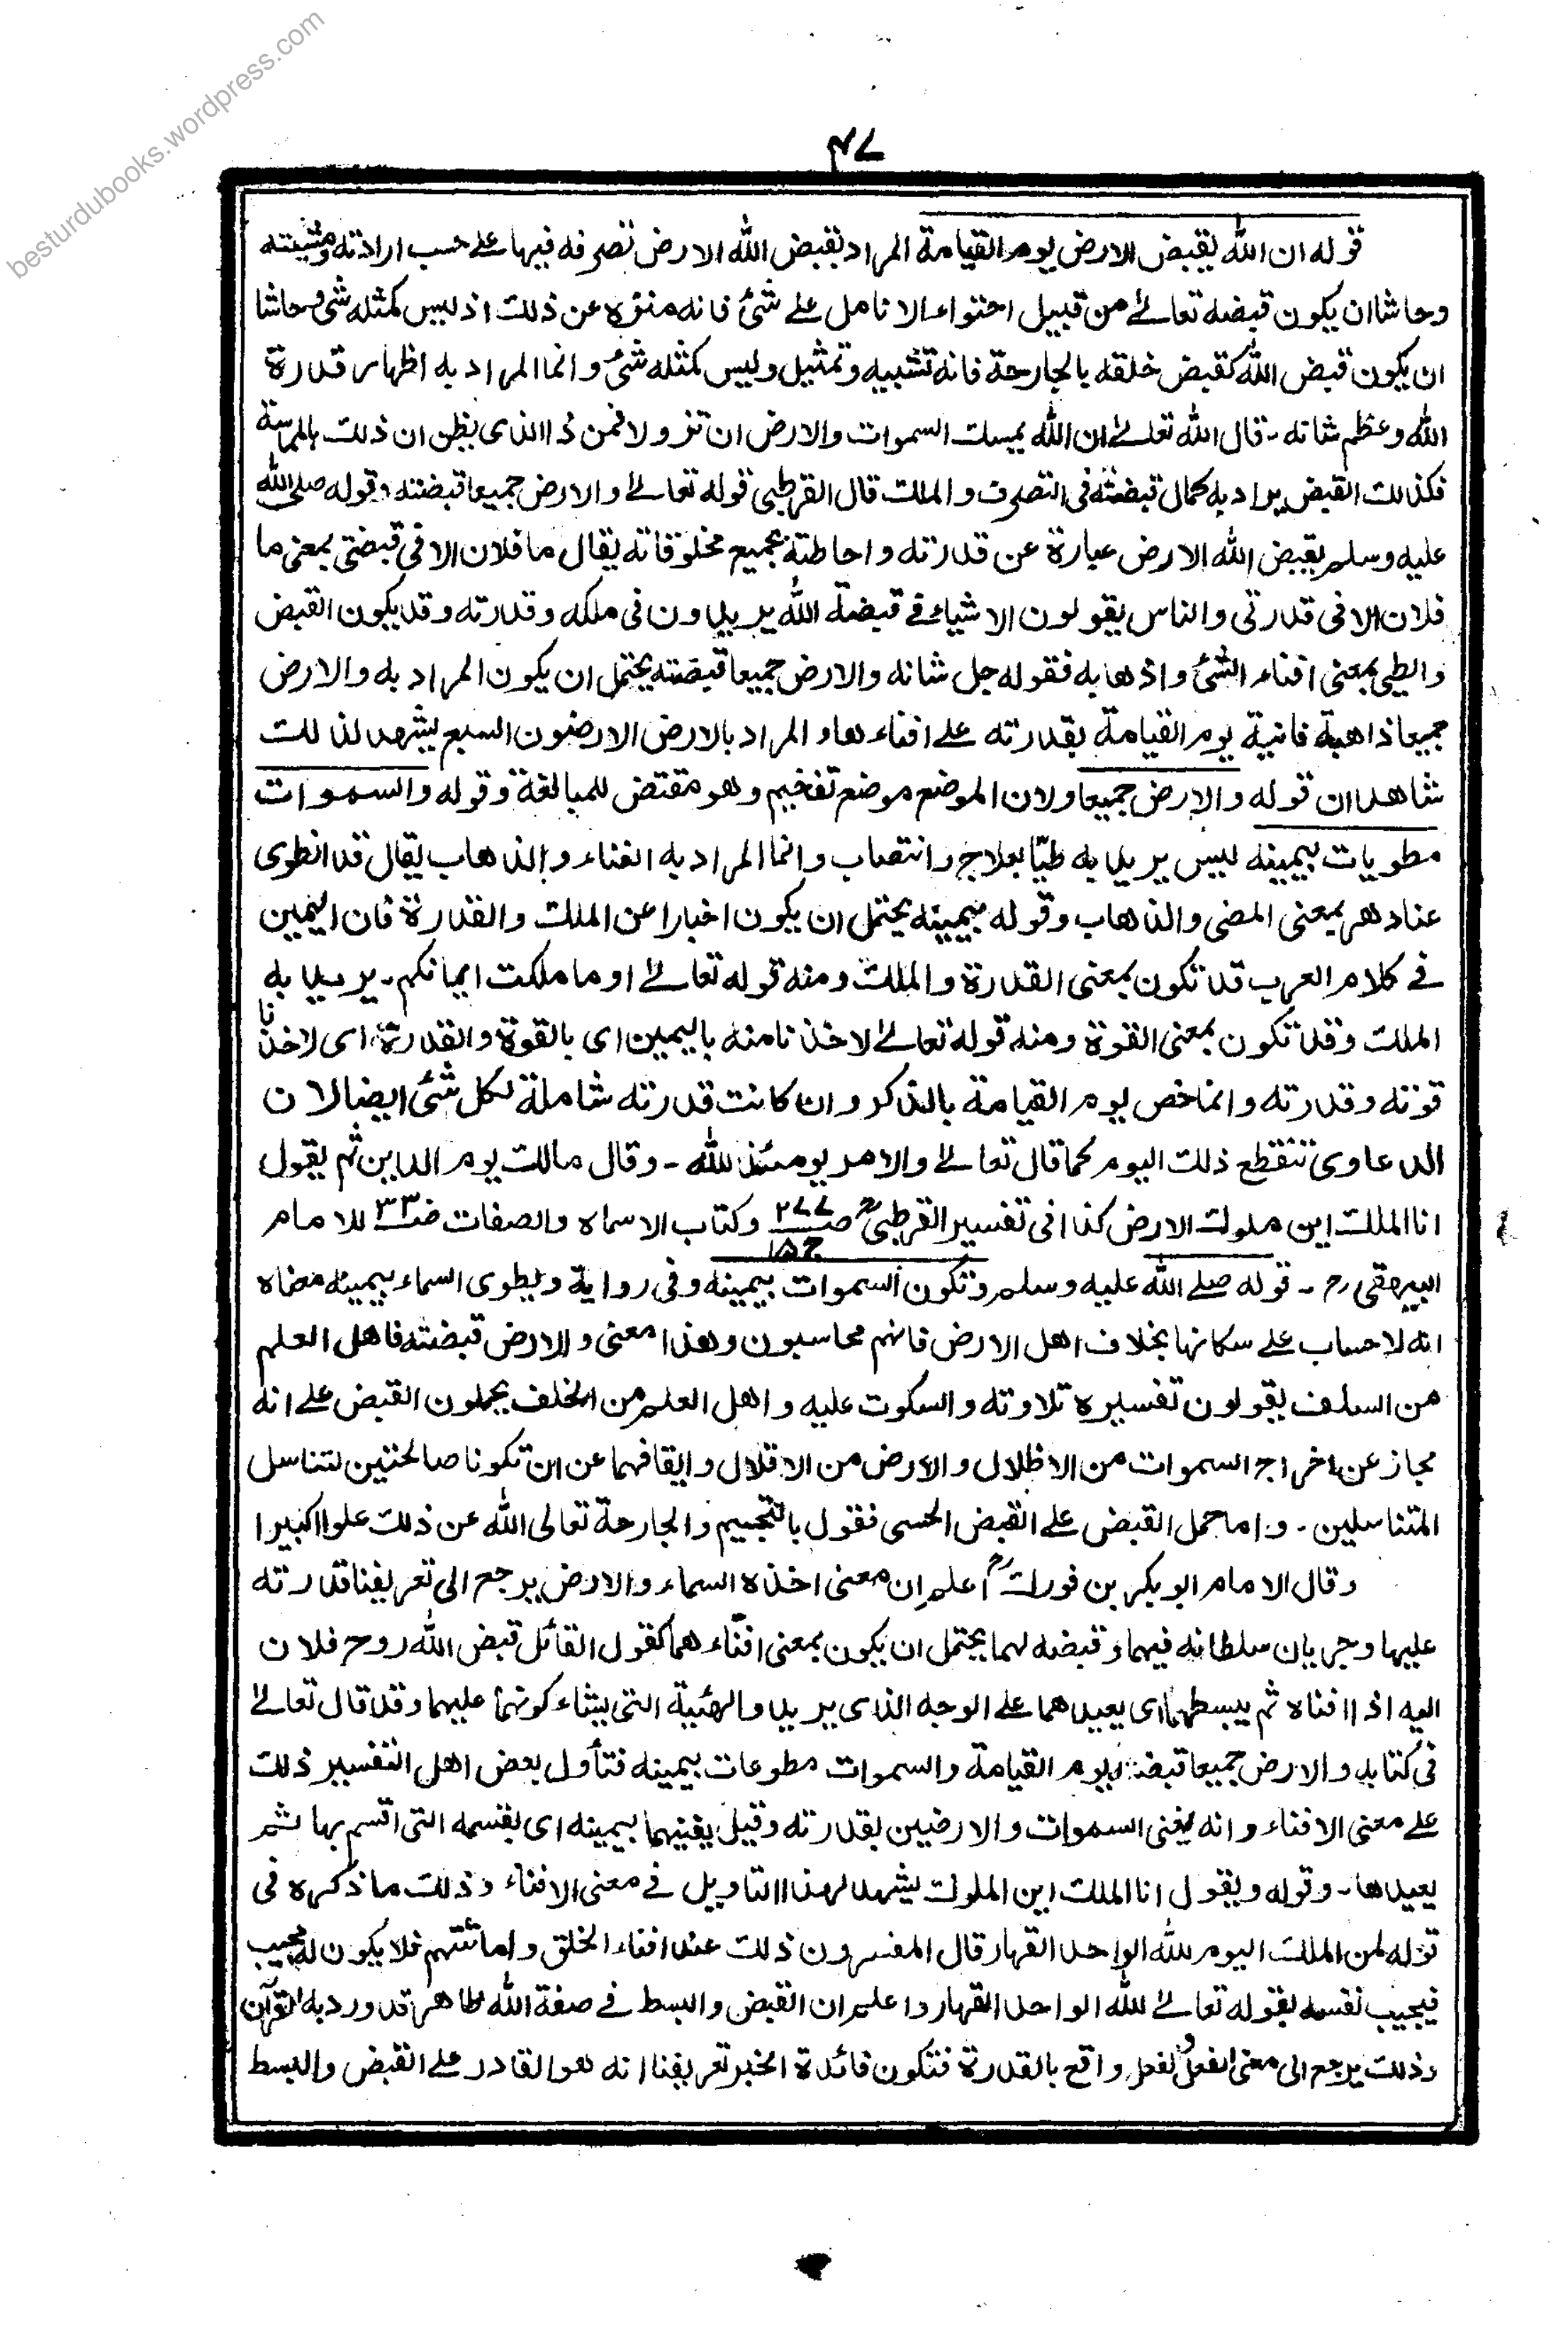 besturdubooks.wordpress.com
۴۷
قوله ان الله يقبض الارض يوم القيامة المراد بقبض الله الارض تصرفه فيها على حسب ارادته ومشيئته
وحاشا ان يكون قبضه تعالى من قبيل احتواء الانامل على شئ فانه منزه عن ذلك اذ ليس كمثله شئ وحاشا
ان يكون قبض الله كقبض خلقه بالجارحة فانه تشبيه وتمثيل وليس كمثله شئ وانما المراد به اظهار قدرة
الله وعظم شانه - قال الله تعالى ان الله يمسك السموات والارض ان تزولا فمن ذا الذى يظن ان ذلك بالمماسة
فكذلك القبض يراد به كمال قبضته فى التصرف والملك قال القرطبى قوله تعالى والارض جميعا قبضته وقوله صلى الله
عليه وسلم يقبض الله الارض عبارة عن قدرته واحاطته بجميع مخلوقاته يقال ما فلان الا فى قبضتى بمعنى ما
فلان الا فى قدرتى والناس يقولون الاشياء فى قبضة الله يريدون فى ملكه وقدرته وقد يكون القبض
والطى بمعنى افناء الشئ واذهابه فقوله جل شانه والارض جميعا قبضته يحتمل ان يكون المراد به والارض
جميعا ذاهبة فانية يوم القيامة بقدرته على افناءها والمراد بالارض الارضون السبع يشهد لذلك
شاهدان قوله والارض جميعا ولان الموضع موضع تفخيم وهو مقتض للمبالغة وقوله والسموات
مطويات بيمينه ليس يريد به طيّا بعلاج وانتصاب وانما المراد به الفناء والذهاب يقال قد انطوى
عنا دهر بمعنى المضى والذهاب وقوله بيمينه يحتمل ان يكون اخبارا عن الملك والقدرة فان اليمين
فى كلام العرب قد تكون بمعنى القدرة والملك ومنه قوله تعالى او ما ملكت ايمانكم - يريد به
الملك وقد تكون بمعنى القوة ومنه قوله تعالى لاخذنا منه باليمين اى بالقوة والقدرة اى لاخذنا
قوته وقدرته وانما خص يوم القيامة بالذكر وان كانت قدرته شاملة لكل شئ ايضا لان
الدعاوى تنقطع ذلك اليوم كما قال تعالى والامر يومئذ لله - وقال مالك يوم الدين ثم يقول
انا الملك اين ملوك الارض كذا فى تفسير القرطبىؒ صـ۲۷۷ ج۱۵ وكتاب الاسماء والصفات صـ۳۳ للامام
البيهقىؒ - قوله صلى الله عليه وسلم وتكون السموات بيمينه وفى رواية ويطوى السماء بيمينه معناه
انه لا حساب على سكانها بخلاف اهل الارض فانهم محاسبون وهذا معنى والارض قبضته فاهل العلم
من السلف يقولون تفسيره تلاوته والسكوت عليه واهل العلم من الخلف يحملون القبض على انه
مجاز عن اخراج السموات من الاظلال والارض من الاقلال وايقافهما عن ان تكونا صالحتين لتناسل
المتناسلين - واما حمل القبض على القبض الحسى فقول بالتجسيم والجارحة تعالى الله عن ذلك علوا كبيرا
وقال الامام ابو بكر بن فوركؒ اعلم ان معنى اخذه السماء والارض يرجع الى تعريفنا قدرته
عليها وجريان سلطانه فيهما وقبضه لهما يحتمل ان يكون بمعنى افناءهما كقول القائل قبض الله روح فلان
اليه اذا افناه ثم يبسطهما اى يعيدهما على الوجه الذى يريد والهيئة التى يشاء كونهما عليهما وقد قال تعالى
فى كتابه والارض جميعا قبضته يوم القيامة والسموات مطوعات بيمينه فتأول بعض اهل التفسير ذلك
على معنى الافناء وانه يفنى السموات والارضين بقدرته وقيل يفنيهما بيمينه اى بقسمه التى اقسم بها ثم
يعيدها - وقوله ويقول انا الملك اين الملوك يشهد لهذا التاويل فى معنى الافناء وذلك ما ذكره فى
قوله لمن الملك اليوم لله الواحد القهار قال المفسرون ذلك عند افناء الخلق واماتتهم فلا يكون له مجيب
فيجيب نفسه بقوله تعالى لله الواحد القهار واعلم ان القبض والبسط فى صفة الله ظاهر قد ورد به القرآن
وذلك يرجع الى معنى الفعل لفعل واقع بالقدرة فتكون فائدة الخبر تعريفنا انه هو القادر على القبض والبسط